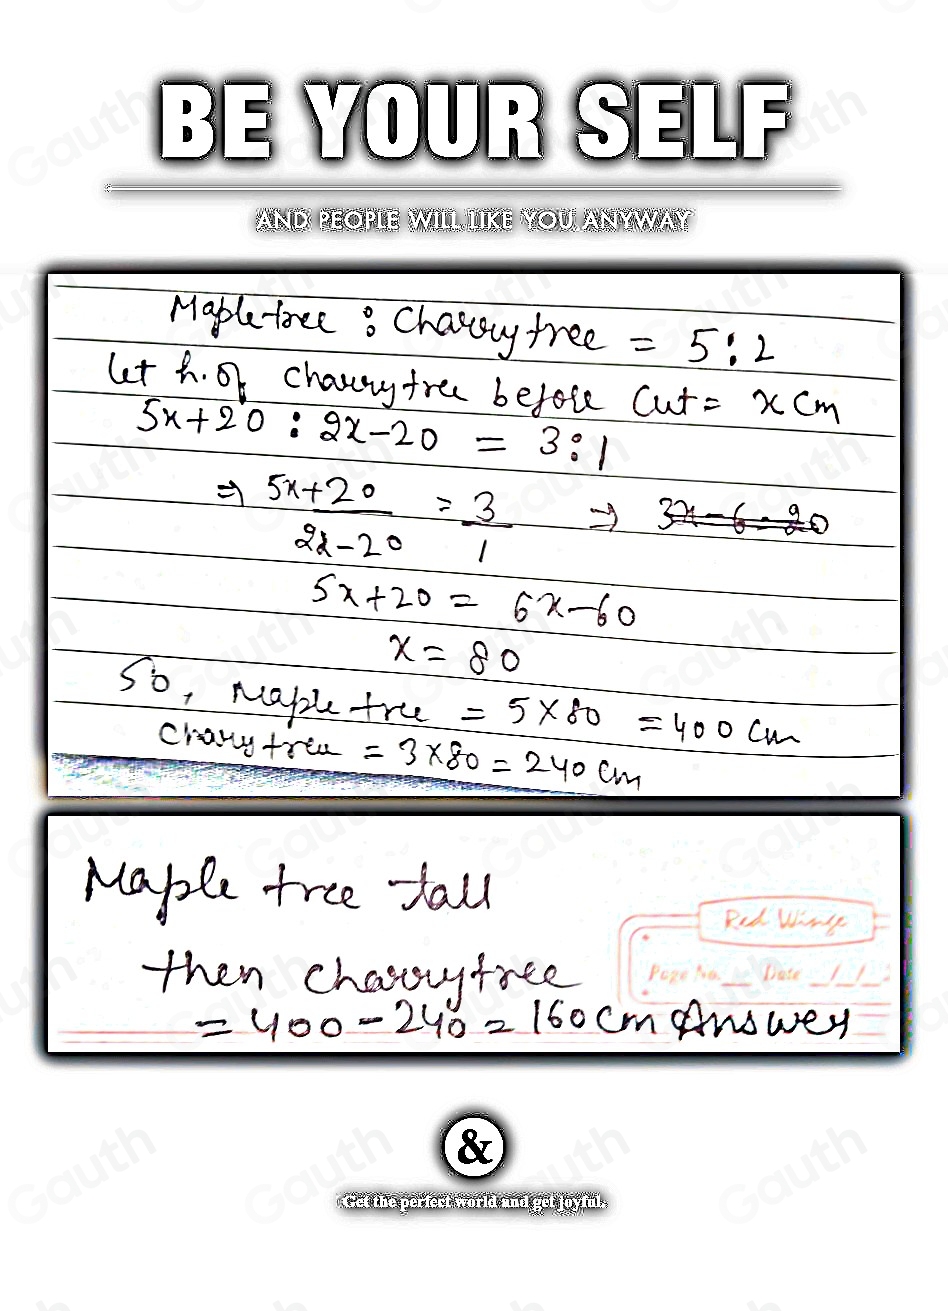 BE YOUR SELF
AND PEOPLE WILL LIKE YOU ANYWAY
Maple tree : Charrytree = 5:2
let h. of charrytree before Cut = x cm
5x+20 : 2x-20 = 3:1
⇒ 5x+20 / 2x-20 = 3/1 ⇒ 3x-6-20
5x+20 = 6x-60
x = 80
So, Maple tree = 5×80 = 400 cm
Charrytree = 3×80 = 240 cm
Maple tree tall
then charrytree
= 400 - 240 = 160 cm Answer
Red Winge
Page No. Date / /
&
Get the perfect world and get joyful.
Gauth